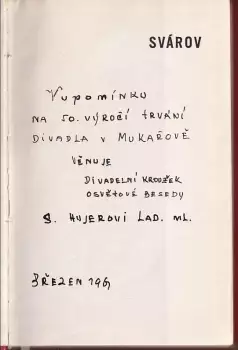 SVÁROV
VUPOMÍNKU
NA 50. VÝROČÍ TRVÁNÍ
DIVADLA V MUKAŘOVĚ
VĚNUJE
DIVADELNÍ KROUŽEK
OSVĚTOVÉ BESEDY
S. HUJEROVI LAD. ML.
BŘEZEN